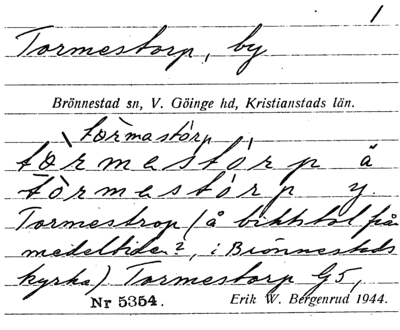 1
Tormestorp, by
Brönnestad sn, V. Göinge hd, Kristianstads län.
tòrmastórp
tòrmastórp ä
tòrmestórp y.
Tormestrop (å biktstol från
medeltiden?, i Brönnestads
kyrka) Tormestorp G5,
Nr 5354. Erik W. Bergenrud 1944.